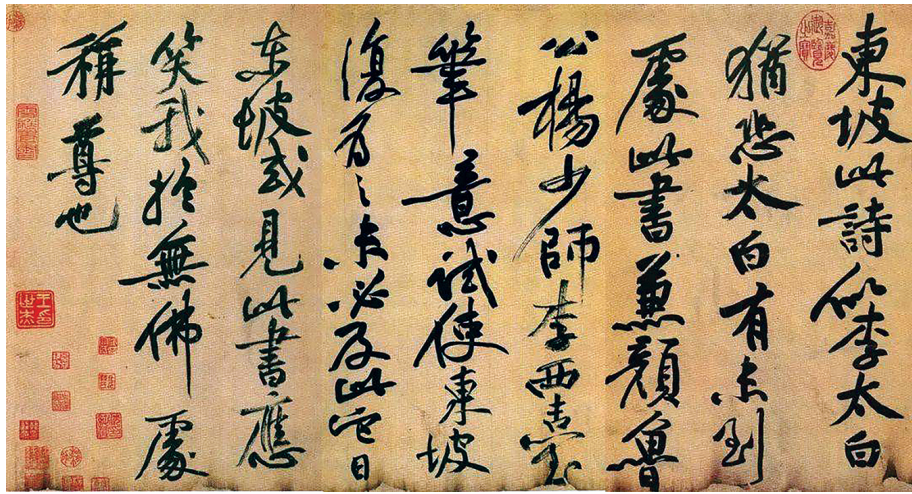 嘉慶御覽之寶
東坡此詩似李太白
猶恐太白有未到
處此書兼顏魯
公楊少師李西臺
筆意試使東坡
復為之未必及此它日
东坡或見此書應
笑我於無佛處
稱尊也
王印世杰